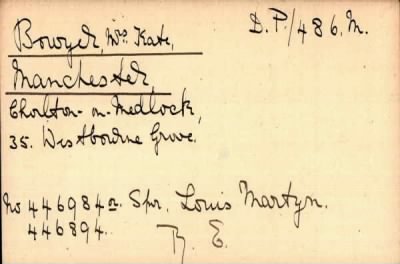 Bowyer, Mrs. Kate,
D.P./486.M.
Manchester,
Chorlton-on-Medlock,
35. Westbourne Grove.
No 446984 or Spr. Louis Martyn.
446894. R. E.